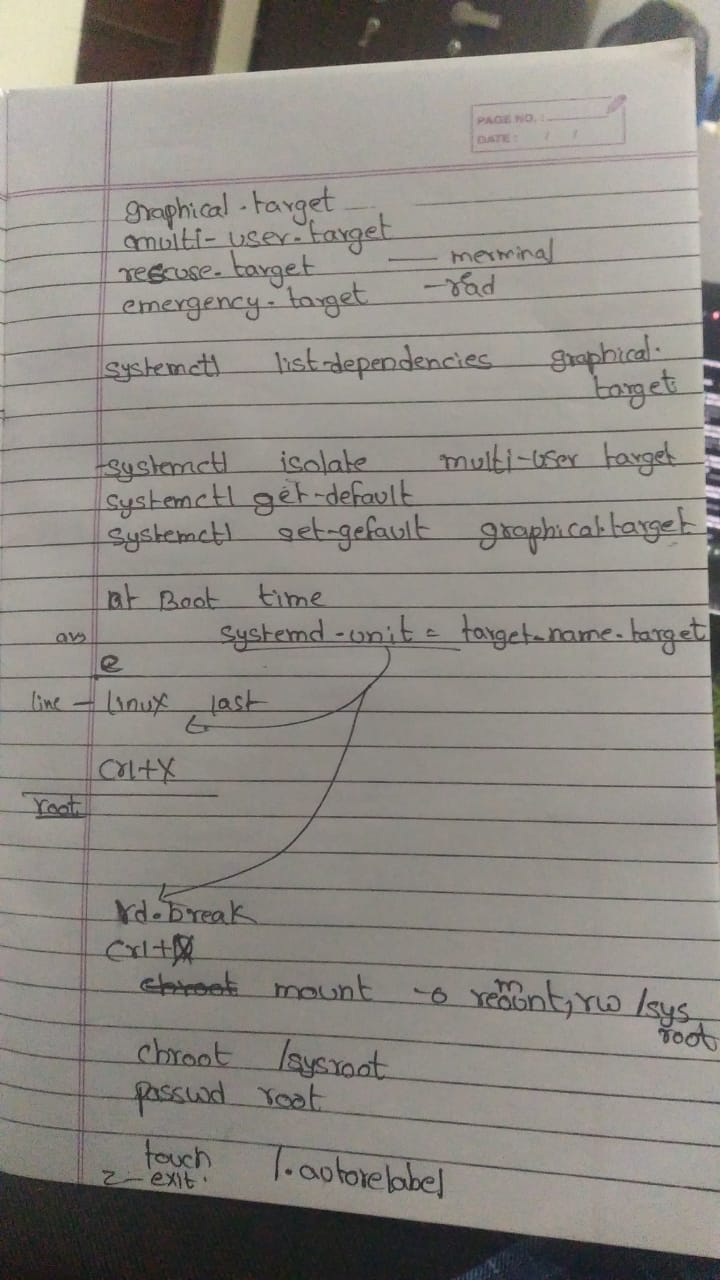 PAGE NO. :
DATE : / /
graphical.target
multi-user.target
rescuse.target — merminal
emergency.target - rad
systemctl list-dependencies graphical.
target
systemctl isolate multi-user target
systemctl get-default
systemctl set-gefault graphical.target
at Boot time
systemd-unit = target-name.target
e
line - linux last
Crl+X
root
rd.break
Crl+X
chroot mount -o remount,rw /sys
root
chroot /sysroot
passwd root
touch /.autorelabel
2- exit.